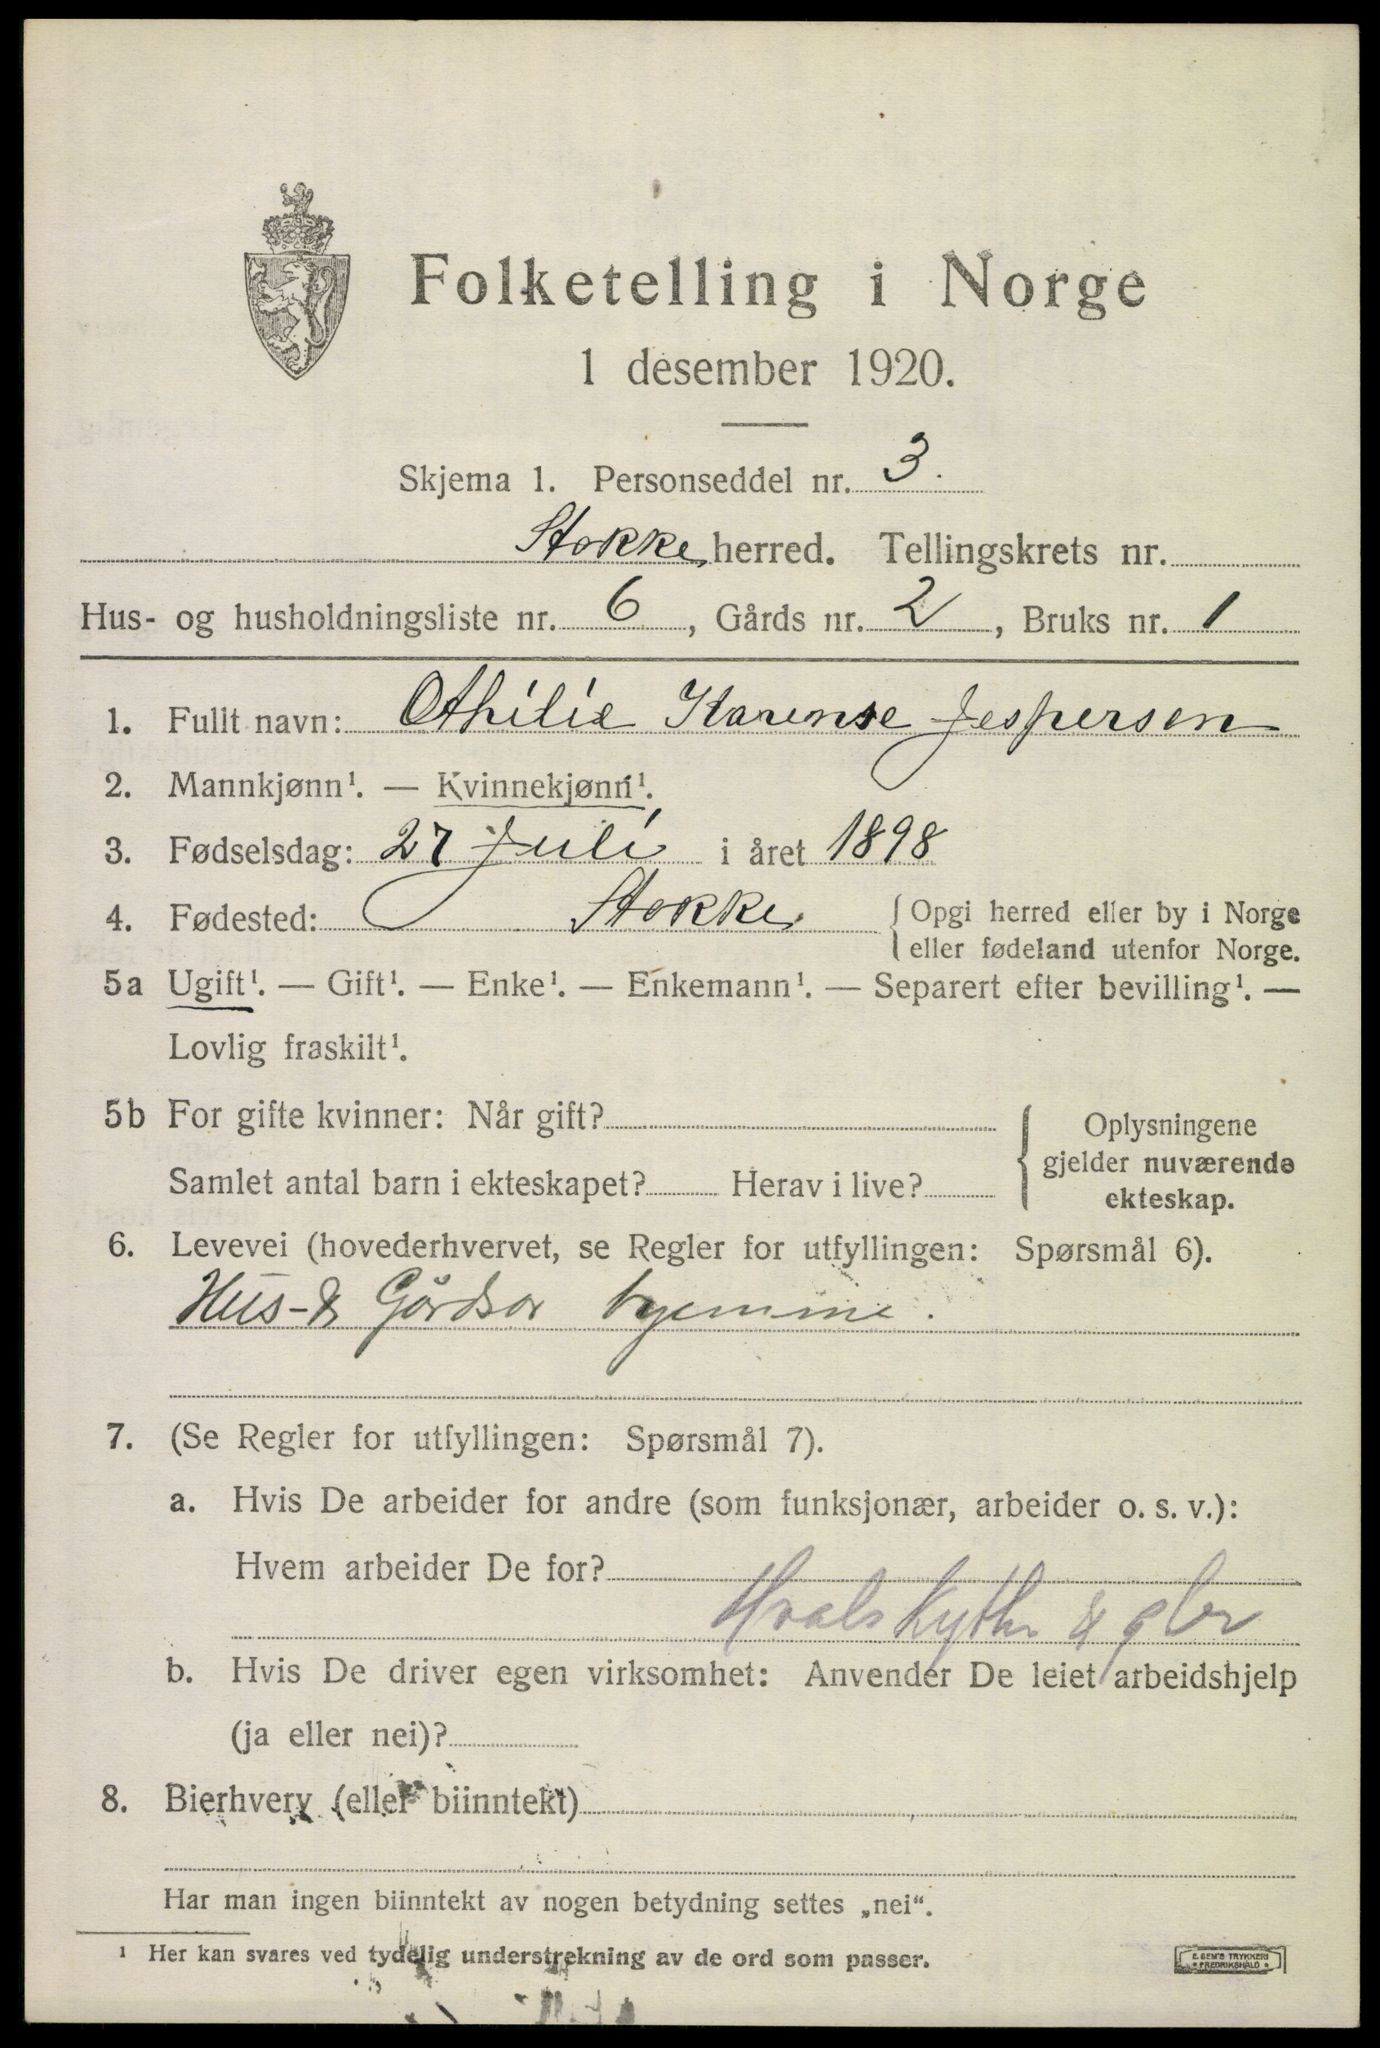 Folketelling i Norge
1 desember 1920.
Skjema 1. Personseddel nr. 3.
Stokke herred. Tellingskrets nr.
Hus- og husholdningsliste nr. 6, Gårds nr. 2, Bruks nr. 1
1. Fullt navn: Othilie Karense Jespersen
2. Mannkjønn¹. — Kvinnekjønn¹.
3. Fødselsdag: 27 Juli i året 1898
4. Fødested: Stokke { Opgi herred eller by i Norge
eller fødeland utenfor Norge.
5a Ugift¹. — Gift¹. — Enke¹. — Enkemann¹. — Separert efter bevilling¹. —
Lovlig fraskilt¹.
5b For gifte kvinner: Når gift?
Samlet antal barn i ekteskapet? Herav i live?
{ Oplysningene
gjelder nuværende
ekteskap.
6. Levevei (hovederhvervet, se Regler for utfyllingen: Spørsmål 6).
Hus- & Gårdsar hjemme.
7. (Se Regler for utfyllingen: Spørsmål 7).
a. Hvis De arbeider for andre (som funksjonær, arbeider o. s. v.):
Hvem arbeider De for?
Hvalskytter &
b. Hvis De driver egen virksomhet: Anvender De leiet arbeidshjelp
(ja eller nei)?
8. Bierhverv (eller biinntekt)
Har man ingen biinntekt av nogen betydning settes „nei“.
¹ Her kan svares ved tydelig understrekning av de ord som passer.
E. SEM'S TRYKKERI
FREDRIKSHALD